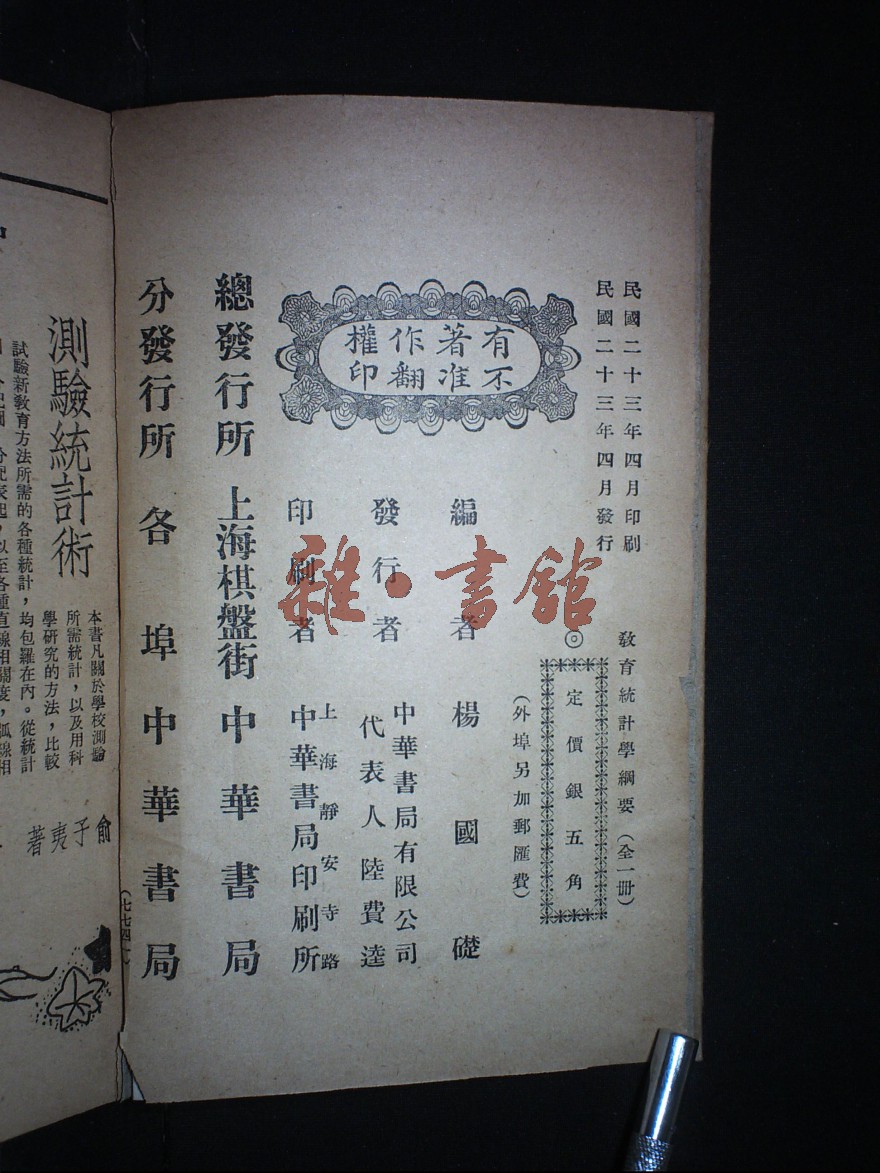 民國二十三年四月印刷
民國二十三年四月發行
教育統計學綱要（全一册）
◎
定價銀五角
（外埠另加郵匯費）
有著作權
不准翻印
編者楊國礎
發行者
中華書局有限公司
代表人陸費逵
印刷者
上海靜安寺路
中華書局印刷所
總發行所 上海棋盤街 中華書局
分發行所 各埠中華書局
雜·書館
測驗統計術
俞子夷著
本書凡關於學校測驗
所需統計，以及用科
學研究的方法，比較
試驗新教育方法所需的各種統計，均包羅在內。從統計